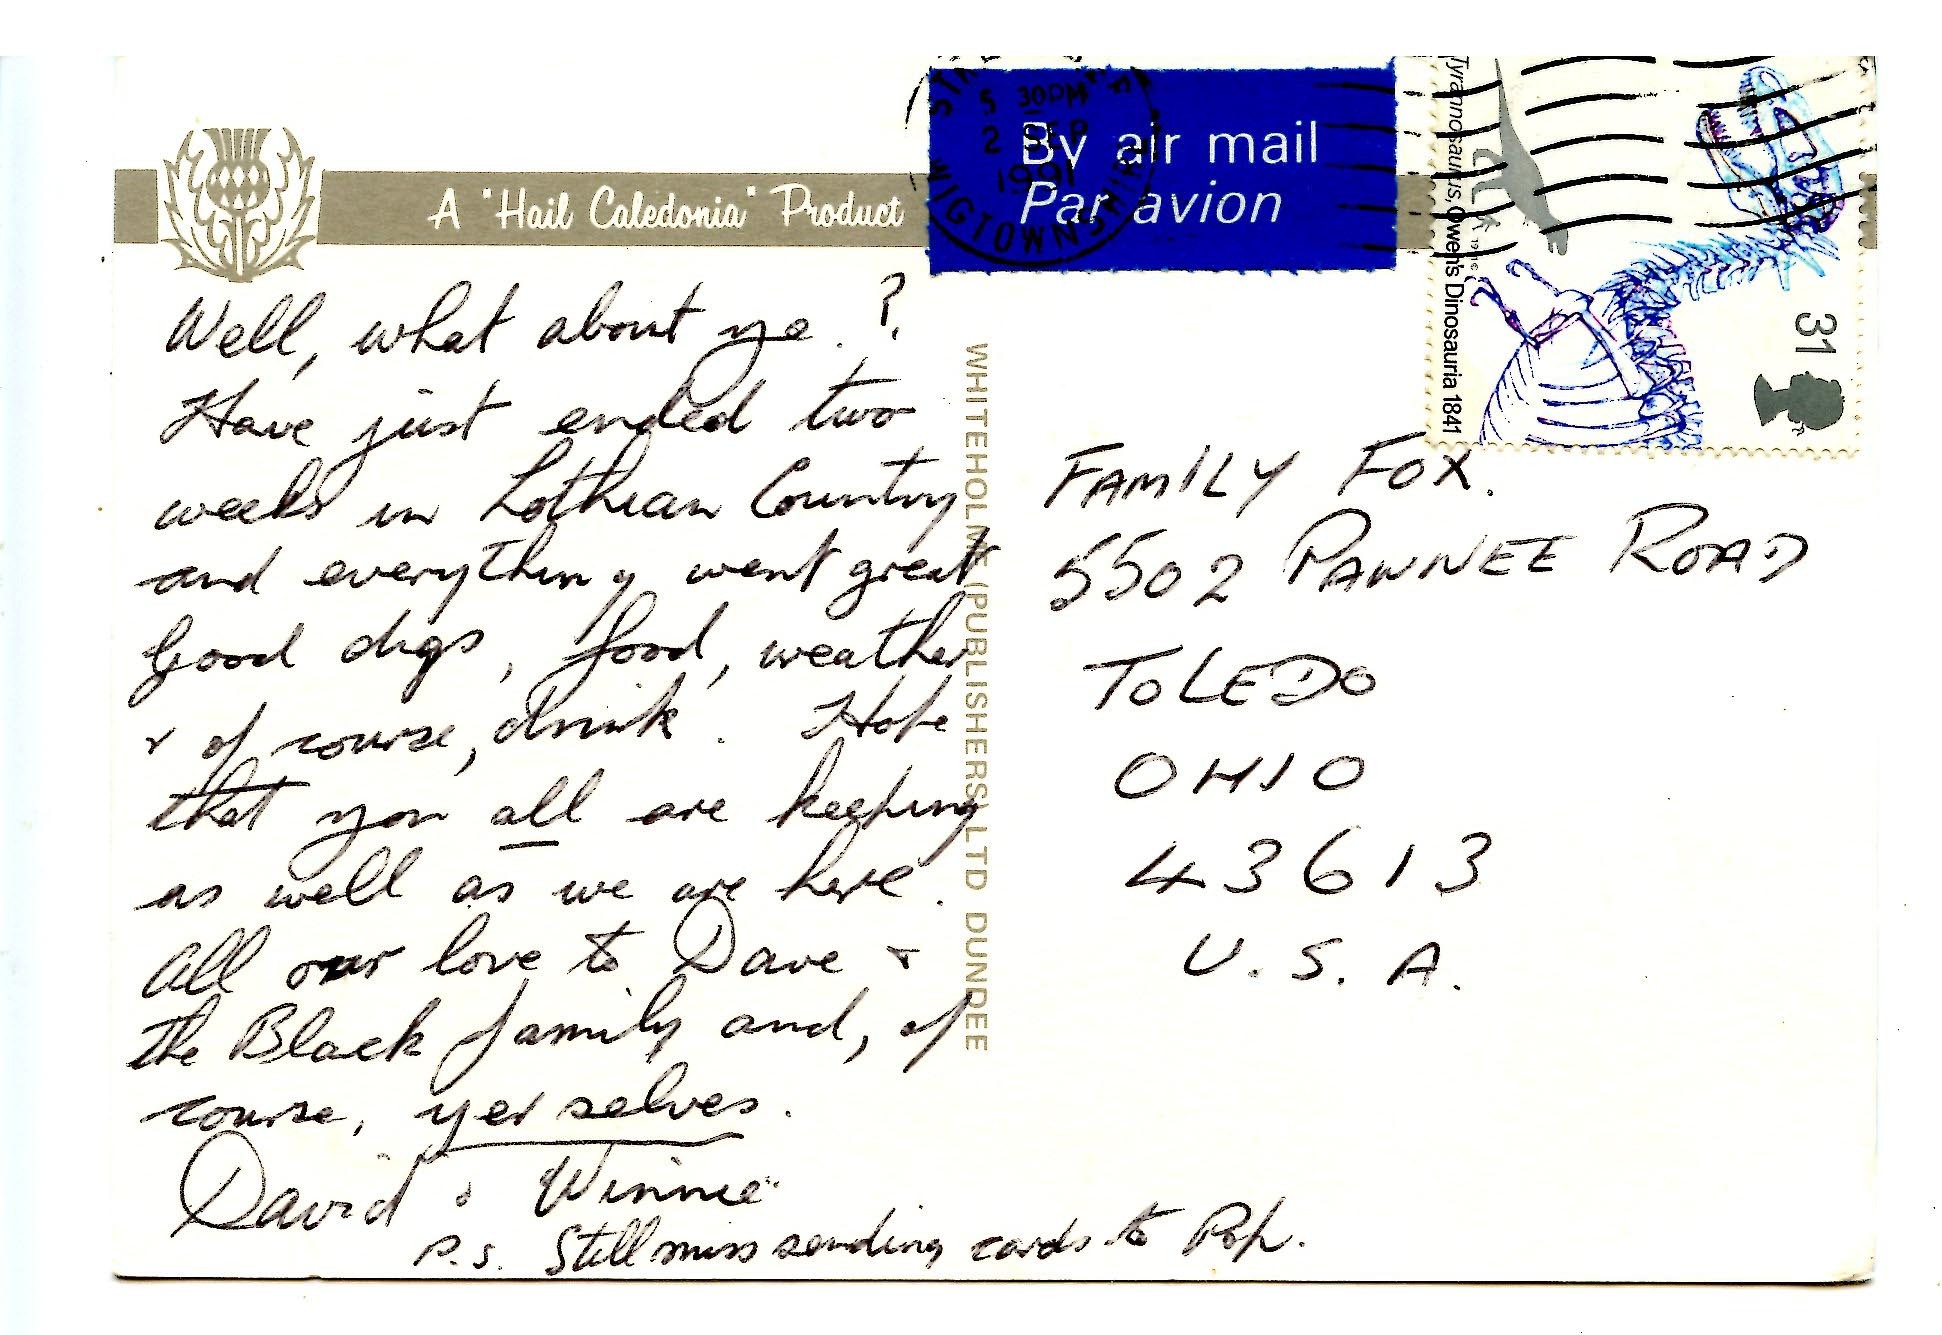 A "Hail Caledonia" Product
By air mail
Par avion
5 30PM
2 SEP
1991
WIGTOWNSHIRE
Tyrannosaurus, Owen's Dinosauria 1841
31
Well, what about ye.?
Have just ended two
weeks in Lothian Country
and everything went great
Good digs, food, weather
& of course, drink. Hope
that you all are keeping
as well as we are here.
All our love to Dave &
the Black family and, of
course, yer selves.
David & Winnie
P.S. Still miss sending cards to Pop.
WHITEHOLME (PUBLISHERS) LTD DUNDEE
FAMILY FOX.
5502 PAWNEE ROAD
TOLEDO
OHIO
43613
U.S.A.